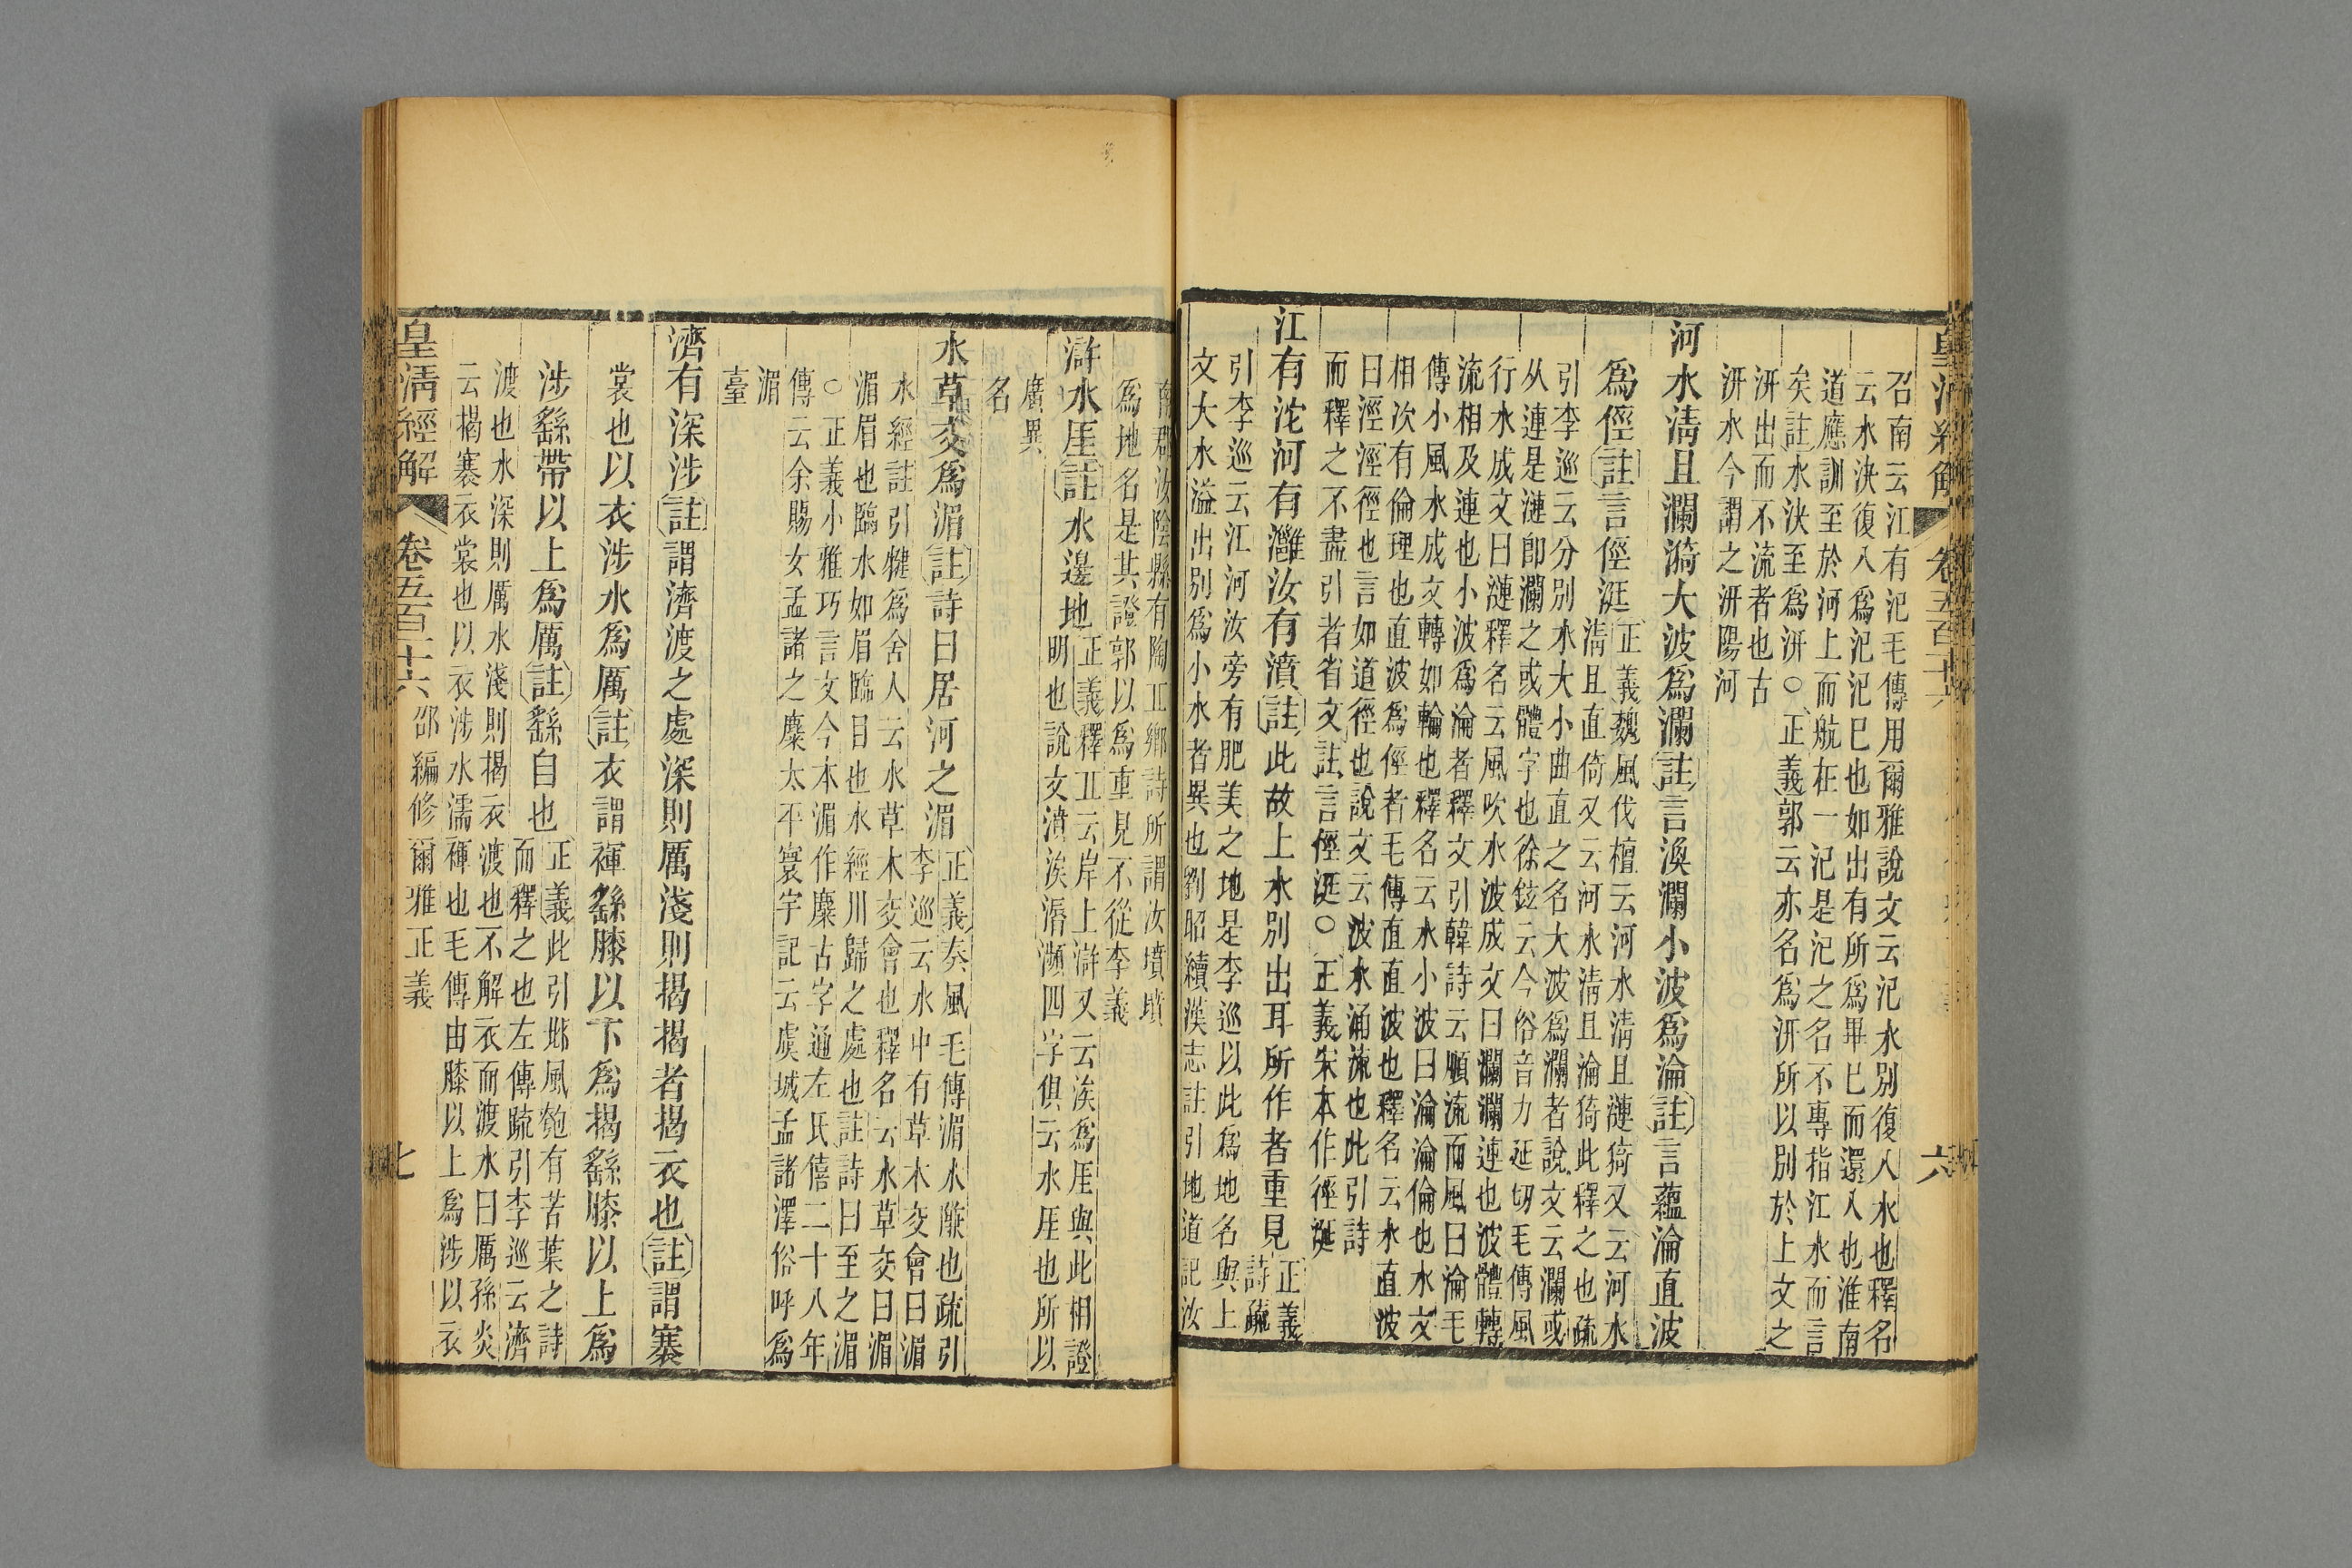 皇清經解 卷五百十六 六
召南云江有汜毛傳用爾雅說文云汜水別復入水也釋名
云水決復入爲汜汜巳也如出有所爲畢巳而還入也淮南
道應訓至於河上而航在一汜是汜之名不專指江水而言
矣註水決至爲汧○正義郭云亦名爲汧所以別於上文之
汧出而不流者也古
汧水今謂之汧陽河
河水淸且瀾漪大波爲瀾註言渙瀾小波爲淪註言蘊淪直波
爲徑註言徑涏
正義魏風伐檀云河水淸且漣猗又云河水
淸且直倚又云河水淸且淪猗此釋之也疏
引李巡云分別水大小曲直之名大波爲瀾者說文云瀾或
从連是漣卽瀾之或體字也徐鉉云今俗音力延切毛傳風
行水成文曰漣釋名云風吹水波成文曰瀾瀾連也波體轉
流相及連也小波爲淪者釋文引韓詩云順流而風曰淪毛
傳小風水成文轉如輪也釋名云水小波曰淪淪倫也水文
相次有倫理也直波爲徑者毛傳直直波也釋名云水直波
曰涇涇徑也言如道徑也說文云波水涌流也此引詩
而釋之不盡引者省文註言徑涏○正義宋本作徑涎
江有沱河有灉汝有濆註此故上水別出耳所作者重見
正義
詩疏
引李巡云江河汝旁有肥美之地是李巡以此爲地名與上
文大水溢出別爲小水者異也劉昭續漢志註引地道記汝
南郡汝陰縣有陶丘鄕詩所謂汝墳墳
爲地名是其證郭以爲重見不從李義
滸水厓註水邊地
正義釋丘云岸上滸又云涘爲厓與此相證
明也說文濆涘漘瀕四字俱云水厓也所以
廣異
名
水草交爲湄註詩曰居河之湄
正義秦風毛傳湄水隒也疏引
李巡云水中有草木交會曰湄
水經註引犍爲舍人云水草木交會也釋名云水草交曰湄
湄眉也臨水如眉臨目也水經川歸之處也註詩曰至之湄
○正義小雅巧言文今本湄作麋古字通左氏僖二十八年
傳云余賜女孟諸之麋太平寰宇記云虞城孟諸澤俗呼爲
湄
臺
濟有深涉註謂濟渡之處深則厲淺則揭揭者揭衣也註謂褰
裳也以衣涉水爲厲註衣謂褌繇膝以下爲揭繇膝以上爲
涉繇帶以上爲厲註繇自也
正義此引邶風匏有苦葉之詩
而釋之也左傳疏引李巡云濟
渡也水深則厲水淺則揭衣渡也不解衣而渡水曰厲孫炎
云揭褰衣裳也以衣涉水濡褌也毛傳由膝以上爲涉以衣
皇淸經解 卷五百十六 邵編修爾雅正義 七